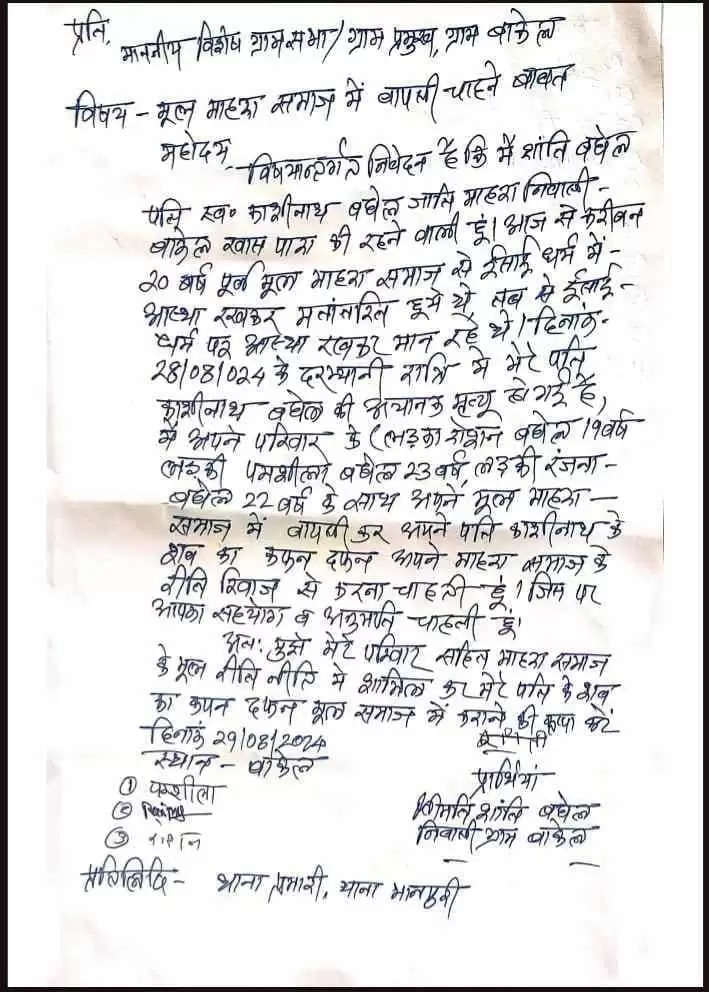 प्रति,
माननीय विशेष ग्रामसभा/ ग्राम प्रमुख, ग्राम बाकेल
विषय - मूल माहरा समाज में वापसी चाहने बाबत
महोदय,
विषयान्तर्गत निवेदन है कि मैं शांति बघेल
पति स्व॰ काशीनाथ बघेल जाति माहरा निवासी -
बाकेल खास पारा की रहने वाली हूं। आज से करीबन
20 वर्ष पूर्व मूल माहरा समाज से ईसाई धर्म में -
आस्था रखकर मतांतरित हुये थे, तब से ईसाई -
धर्म पर आस्था रखकर मान रहे थे। दिनांक -
28/08/024 के दरम्यानी रात्रि में मेरे पति
काशीनाथ बघेल की अचानक मृत्यू हो गई है,
मैं अपने परिवार के (लड़का रोशन बघेल 19 वर्ष
लड़की पमशीला बघेल 23 वर्ष, लड़की रंजना -
बघेल 22 वर्ष के साथ अपने मूल माहरा -
समाज में वापसी कर अपने पति काशीनाथ के
शव का कफन दफन अपने माहरा समाज के
रीति रिवाज से करना चाहती हूं। जिस पर
आपका सहयोग व अनुमति चाहती हूं।
अतः मुझे मेरे परिवार सहित माहरा समाज
के मूल रीति नीति में शामिल कर मेरे पति के शव
का कफन दफन मूल समाज में कराने की कृपा करें
दिनांक 29/08/2024
स्थान - बाकेल
प्रार्थियां
① पमशीला
②
③
श्रीमति शांति बघेल
निवासी ग्राम बाकेल
प्रतिलिपि - थाना प्रभारी, थाना भानपुरी